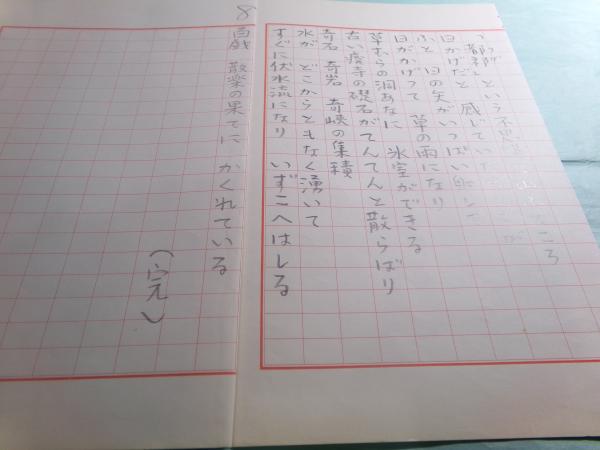 という不思
日かげだと 感じていた
ふと 日の矢がいっぱい
日がかげって 草の雨になり
草むらの洞あなに 氷室ができる
古い廃寺の礎石がてんてんと散らばり
奇石 奇岩 奇峡の集積
水が どこからともなく湧いて
すぐに伏水流になり いずこへはしる
8
百戯 散楽の果てに かくれている
(完)